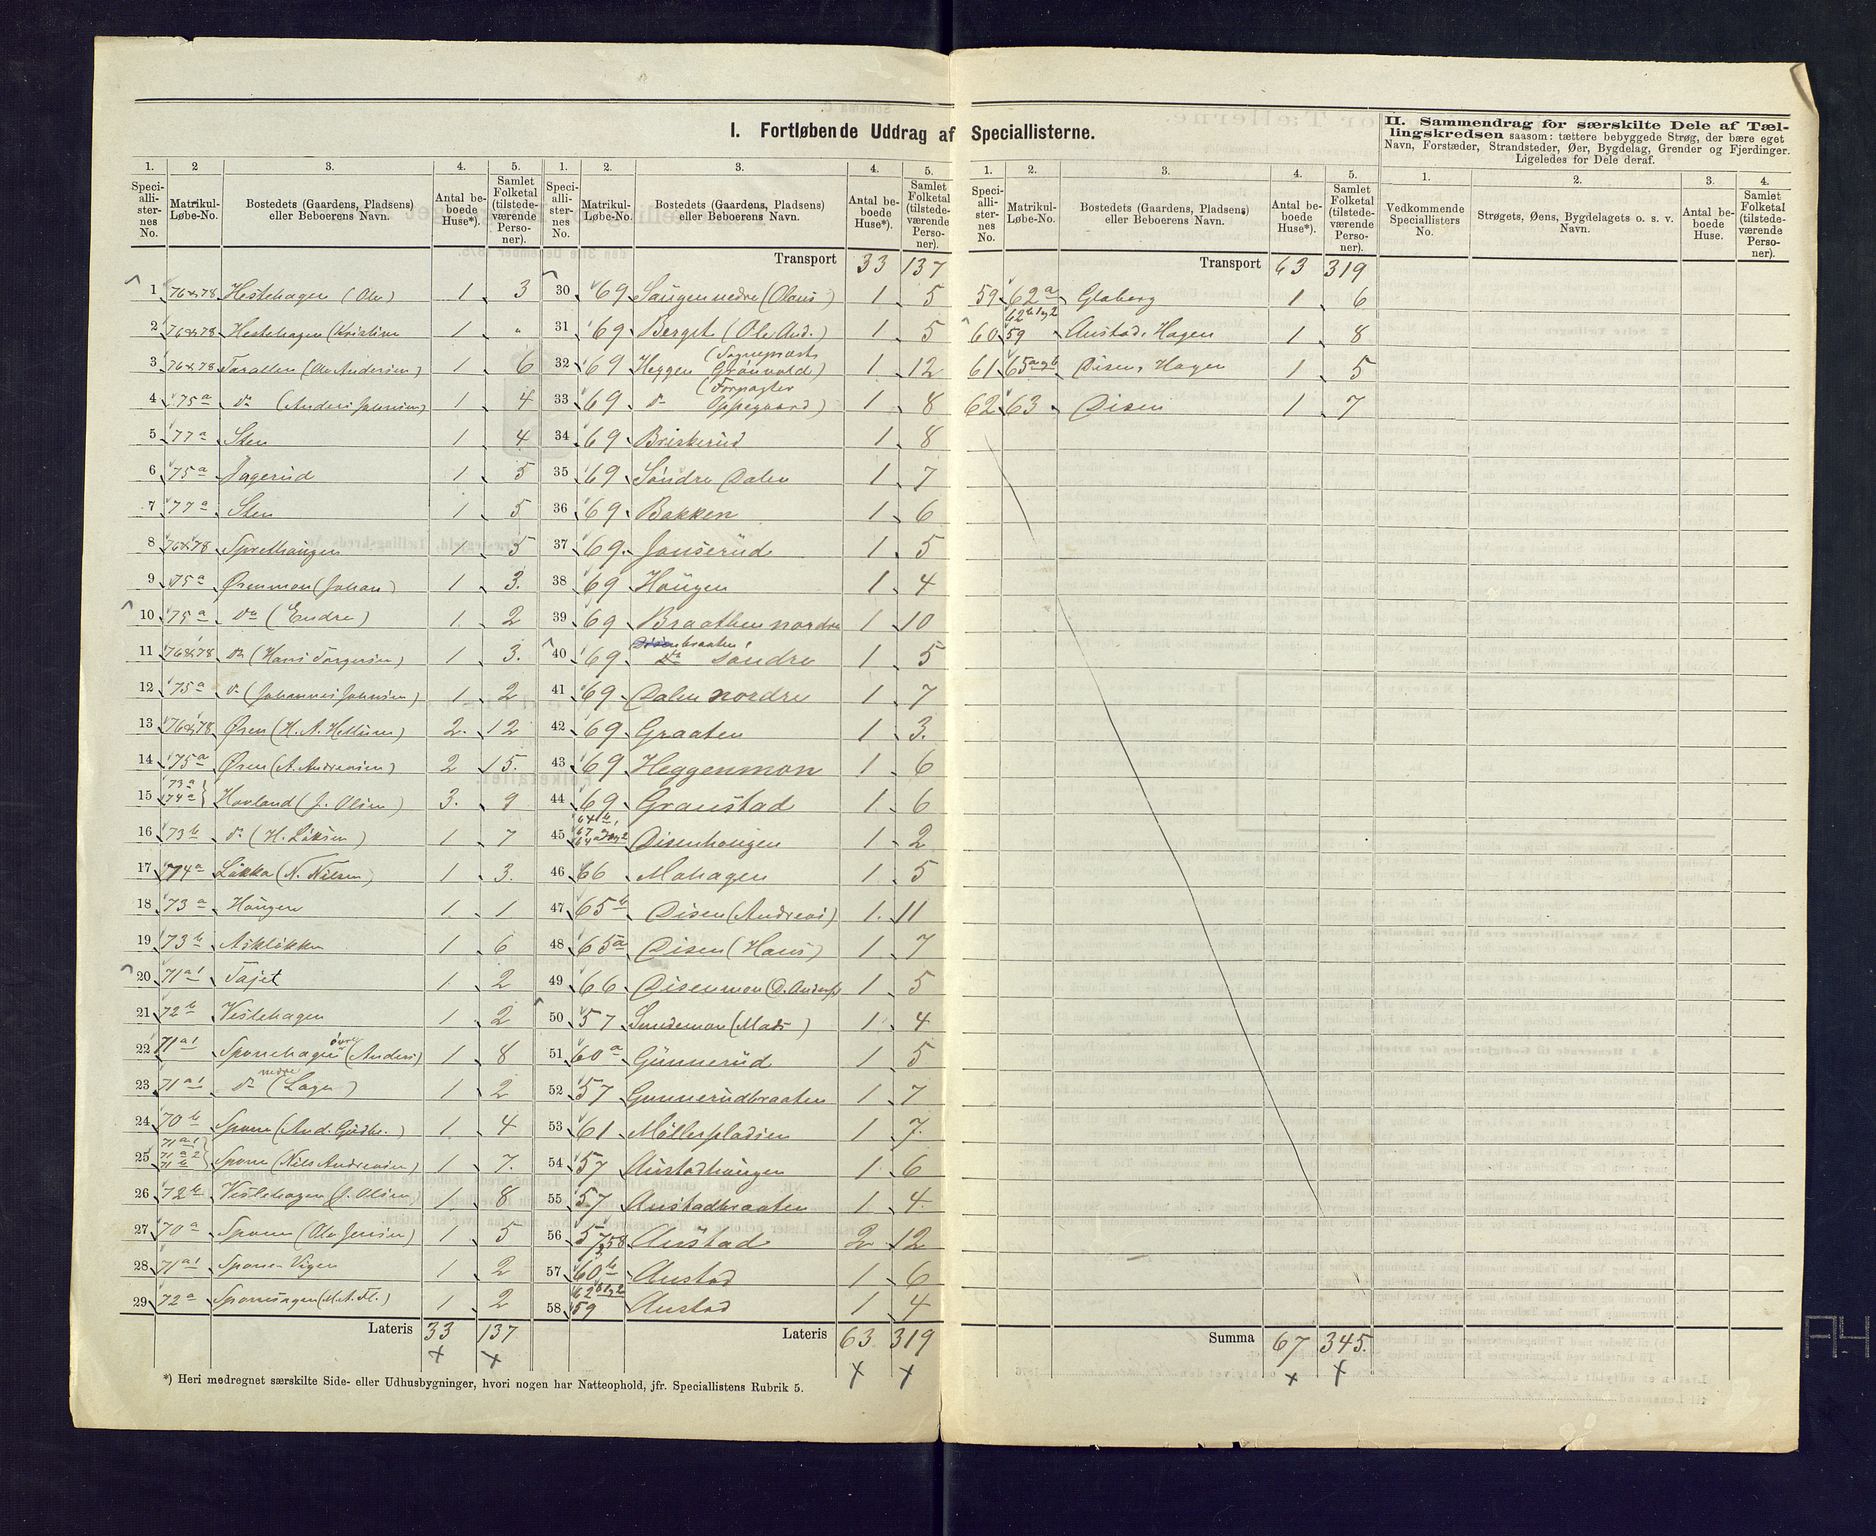 I. Fortløbende Uddrag af Speciallisterne.
II. Sammendrag for særskilte Dele af Tællingskredsen saasom: tættere bebyggede Strøg, der bære eget
Navn, Forstæder, Strandsteder, Øer, Bygdelag, Grender og Fjerdinger.
Ligeledes for Dele deraf.
1. 2 3. 4. 5.
Speciallisternes No. Matrikul-Løbe-No. Bostedets (Gaardens, Pladsens) eller Beboerens Navn. Antal beboede Huse*). Samlet Folketal (tilstedeværende Personer).
1 76&78 Hestehagen (Ole) 1 3
2 76&78 Hestehagen (Kristine 1 "
3 76&78 Taralden (Ole Andersen) 1 6
4 75a do (Anders Johnsen) 1 4
5 77a Sten 1 4
6 75a Aagerud 1 5
7 77a Sten 1 5
8 76&78 Sprelhaugen 1 5
9 75a Ørenmon (Johan) 1 3.
10 75a do (Endre) 1. 2
11 76&78 do (Hans Torgersen) 1 3.
12 75a do (Johannes Johnsen) 1 2
13 76&78 Øren (H. A. Hellum) 2. 12
14 75a Øren (A. Andresen) 2 15.
15 73a 74a Hovland (J. Olsen) 3. 9
16 73b do (H. Löksen) 1 7
17 74a Lökka (N. Nilsen) 1 3.
18 73a Haugen 1. 1
19 73b Asklökken 1 6
20 71a1 Tajet 1 2
21 72b Veslehagen 1 2
22 71a1 Sponehagen övre (Anders) 1 8
23 71a1 do nedre (Lage) 1 2
24 70b Spone (And. Gudbr.) 1 4
25 71a1 71a2 71b Spone (Nils Andresen) 1 7.
26 72b Veslehagen (J. Olsen) 1. 8
27 70a Spone (Ole Jensen) 1 5
28 71a1 Spone Vigen 1 2
29 72a Sponesagen (M. A. Fl.) 1 2
Lateris 33 137
1. 2. 3. 4. 5.
Speciallisternes No. Matrikul-Løbe-No. Bostedets (Gaardens, Pladsens) eller Beboerens Navn. Antal beboede Huse*). Samlet Folketal (tilstedeværende Personer).
Transport 33 137
30 69 Haugen nedre (Olaus) 1 5
31 69 Berget (Ole And.) 1 5
32 69 Heggen (Sognepræst Grönvold) 1 12
33 69 do (Forpagter Oppegaard) 1 8
34 69 Briskerud 1 8
35 69 Söndre Dalen 1 7
36 69 Bakken 1 6
37 69. Jonserud 1 5
38 69 Haugen 1 4
39 69 Braathen nordre 1 10
40 69 Disenbraaten do söndre 1 5
41 69 Dalen nordre 1 7
42 69 Graaten 1 3.
43 69 Heggenmon 1 6
44 69 Granstad 1 6
45 64b, 67 64a1og2 Disenhaugen 1 2
46 66 Mohagen 1. 5
47 65b Disen (Andreas) 1. 11
48 65a Disen (Hans) 1 7
49 66 Disenmon (D. Anders) 1 5
50 57 Sundemon (Mads) 1 4
51 60a Gunnerud 1 5
52 57 Gunnerudbraaten 1 7
53 61 Möllerpladsen 1 7.
54 57 Austadhaugen 1 6
55 57 Austadbraaten 1 4.
56 57, 58 Austad 2 12
57 60b Austad 1 6
58 62b1og2 59 Austad 1 4
Lateris 63 319
*) Heri medregnet særskilte Side- eller Udhusbygninger, hvori nogen har Natteophold, jfr. Speciallistens Rubrik 5.
1. 2. 3. 4. 5.
Speciallisternes No. Matrikul-Løbe-No. Bostedets (Gaardens, Pladsens) eller Beboerens Navn. Antal beboede Huse*). Samlet Folketal (tilstedeværende Personer).
Transport 63 319
59 62a Globerg 1 6
60 62b1og2 59 Austad, Hagen 1 8
61 65aogb Disen, Hagen 1 5
62 63 Disen 1 7
Summa 67 345.
1. 2. 3. 4.
Vedkommende Speciallisters No. Strøgets, Øens, Bygdelagets o. s. v. Navn. Antal beboede Huse. Samlet Folketal (tilstedeværende Personer).